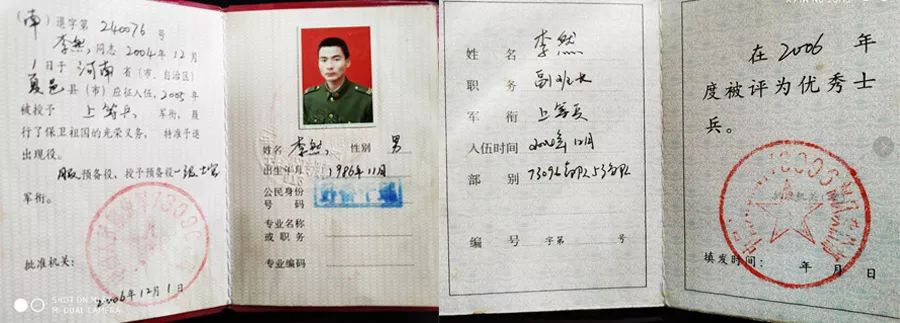 (南)退字第 240076 号
李然,同志 2004 年 12 月
1 日于 河南 省(市、自治区)
夏邑 县(市)应征入伍,2005 年
被授予 上等兵 军衔,履
行了保卫祖国的光荣义务,特准予退
出现役。
预备役,授予预备役
军衔。
批准机关:
2006 年 12 月 1 日
SHOT ON MI
MI DUAL CAMERA
姓名 李然 性别 男
出生年月 1986年11月
公民身份
号 码
专业名称
或 职务
专业编码
姓 名 李然
职 务 副班长
军 衔 上等兵
入伍时间 2004年12月
部 别 73096部队53分队
编 号 字第 号
在 2006 年
度被评为优秀士
兵。
填发时间: 年 月 日